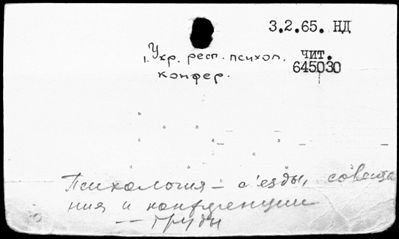 3.2.65. НД
1. Укр. респ. психол.
чит.
конфер.
645030
Психология – съезды, совеща
ния и конференции
— труды